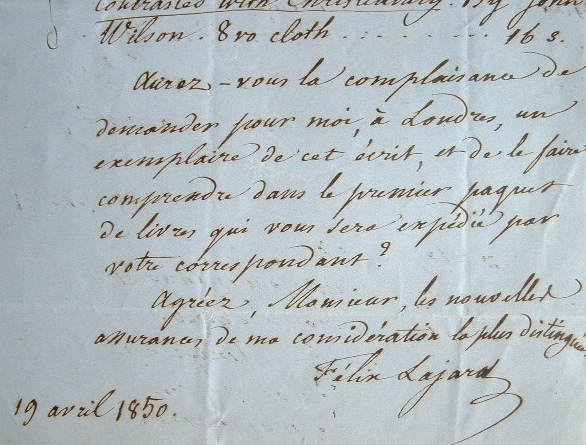 contrasted with Christianity. By John
Wilson. 8vo cloth . . . . . . . . . 16 s.
Aurez-vous la complaisance de
demander pour moi, à Londres, un
exemplaire de cet écrit, et de le faire
comprendre dans le premier paquet
de livres qui vous sera expédié par
votre correspondant?
Agréez, Monsieur, les nouvelles
assurances de ma considération la plus distinguée
Félix Lajard
19 avril 1850.